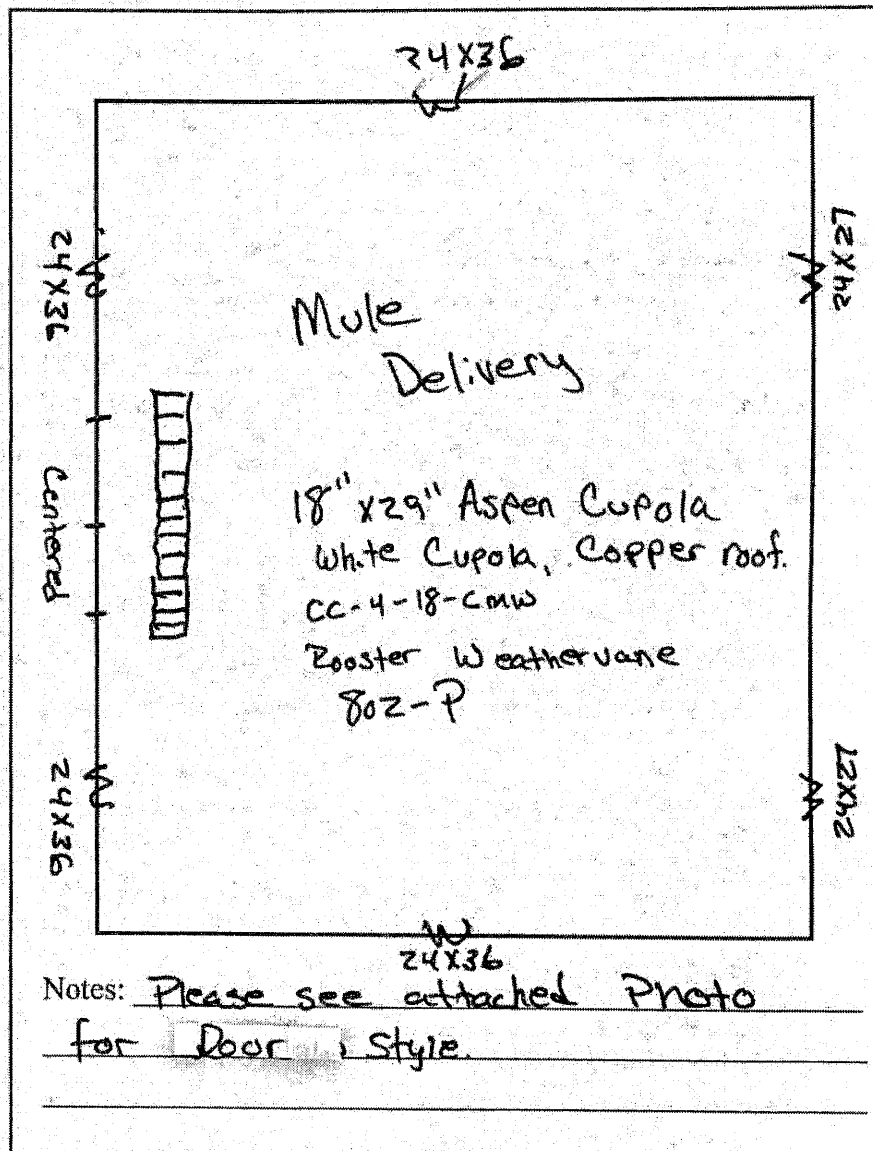 24X36
24X36
24X27
Mule
Delivery
Centered
18" x29" Aspen Cupola
White Cupola, Copper roof.
CC-4-18-CMW
Rooster Weathervane
802-P
24X36
24X27
24X36
Notes: Please see attached Photo
for Door Style.